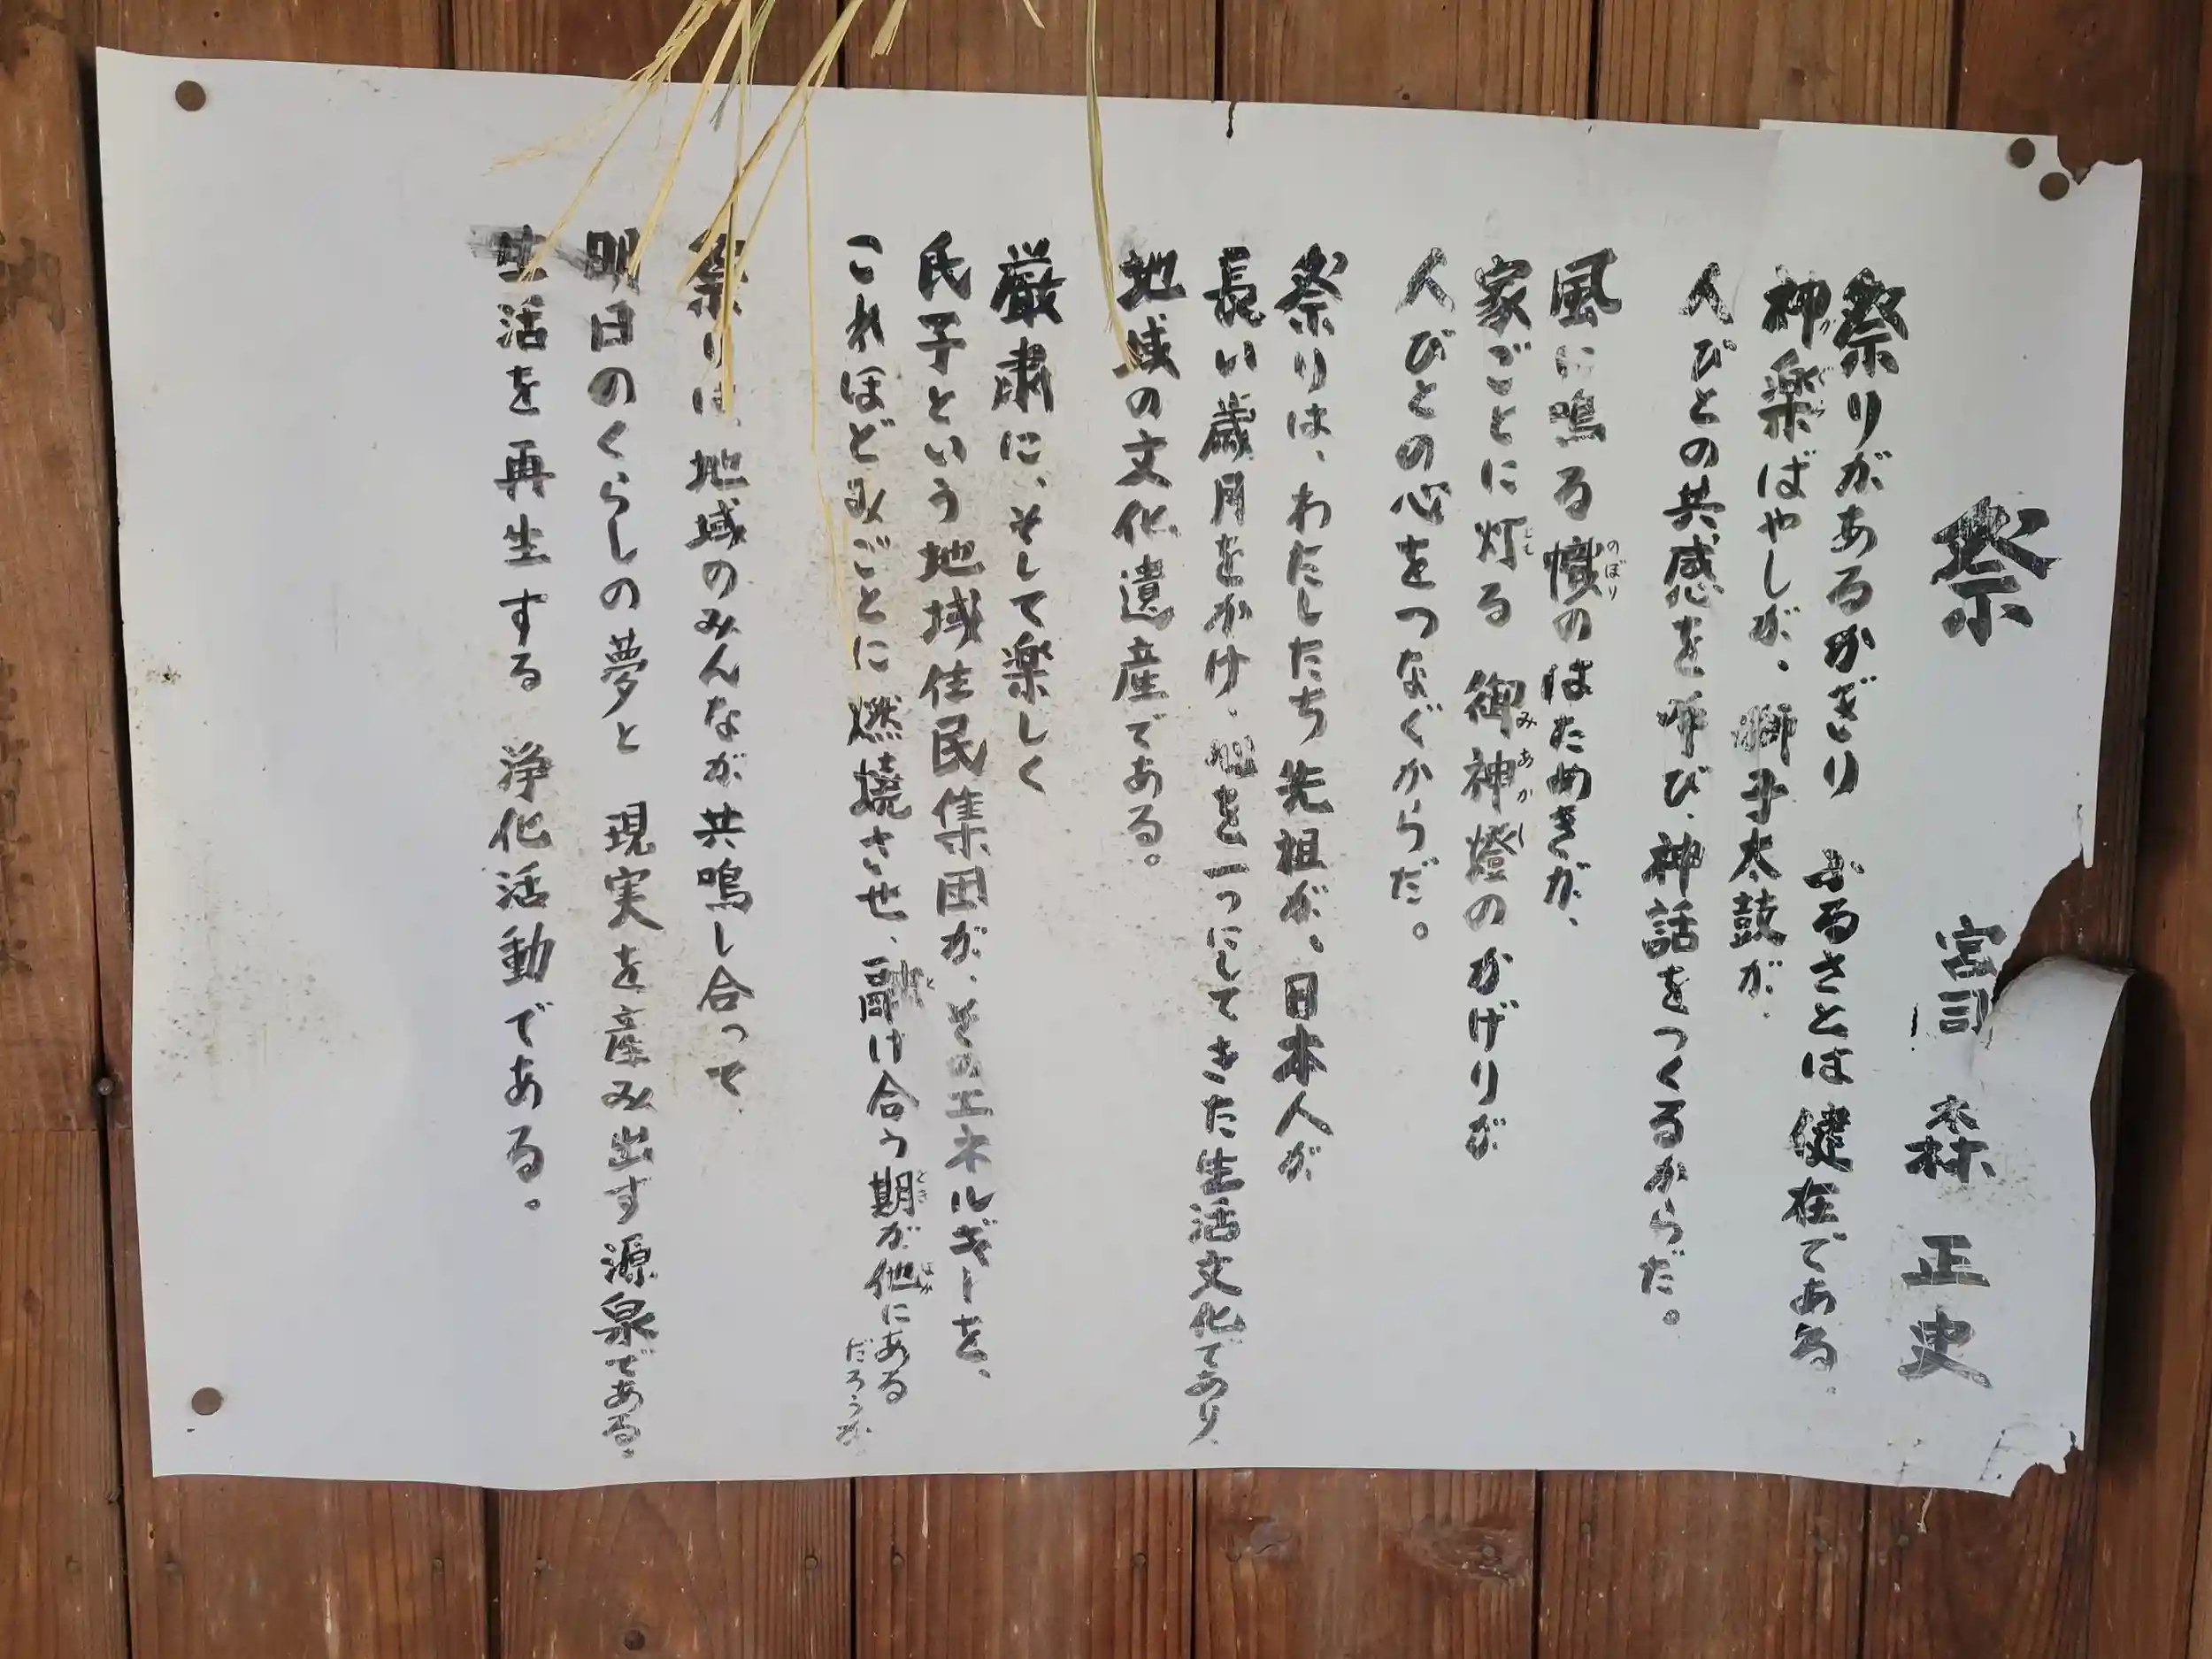 祭
宮司 森 正史
祭りがあるかぎり ふるさとは健在である。
神楽ばやしが、獅子太鼓が、
人びとの共感を呼び、神話をつくるからだ。
風に鳴る幟のはためきが、
家ごとに灯る 御神燈のかげりが
人びとの心をつなぐからだ。
祭りは、わたしたち先祖が、日本人が
長い歳月をかけ、心を一つにしてきた生活文化であり
地域の文化遺産である。
厳粛に、そして楽しく
氏子という地域住民集団が、そのエネルギーを、
これほどみごとに燃焼させ、融け合う期が他にある
だろうか
祭りは、地域のみんなが共鳴し合って
明日のくらしの夢と 現実を産み出す源泉である。
生活を再生する 浄化活動である。